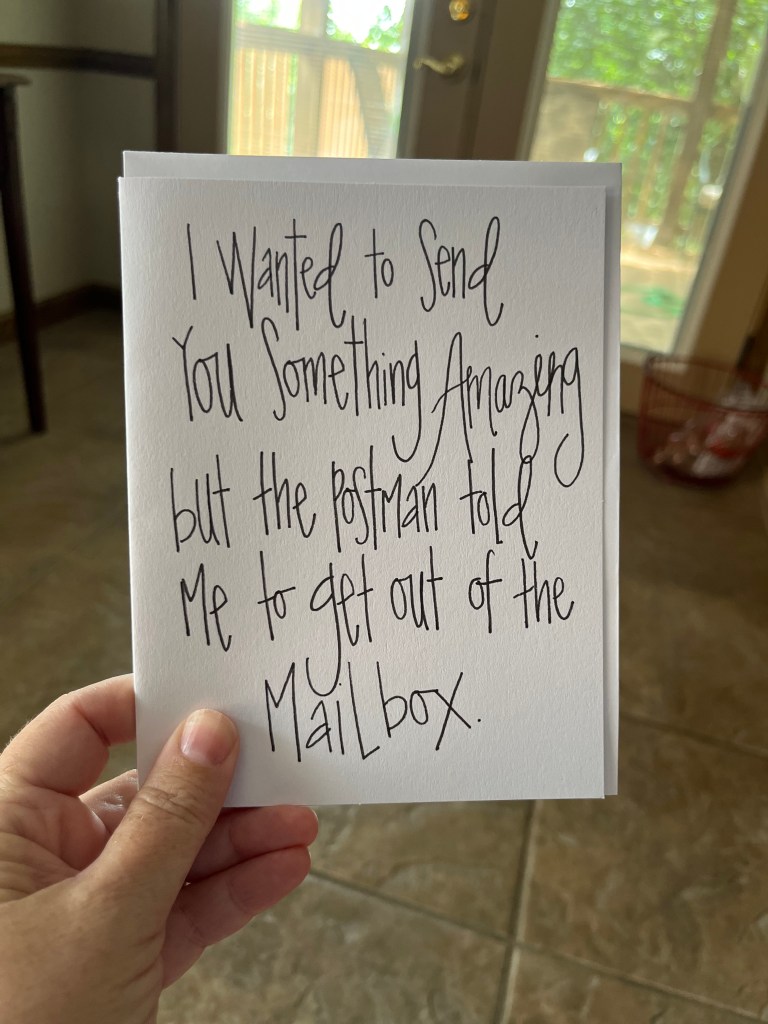 I Wanted to Send
You Something Amazing
but the Postman told
Me to get out of the
Mailbox.